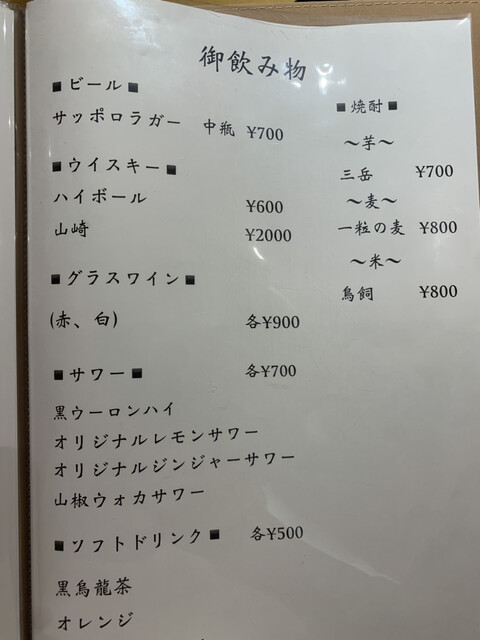 御飲み物
■ビール■
サッポロラガー 中瓶 ¥700
■ウイスキー■
ハイボール ¥600
山崎 ¥2000
■グラスワイン■
(赤、白) 各¥900
■サワー■ 各¥700
黒ウーロンハイ
オリジナルレモンサワー
オリジナルジンジャーサワー
山椒ウォカサワー
■ソフトドリンク■ 各¥500
黒烏龍茶
オレンジ
■焼酎■
～芋～
三岳 ¥700
～麦～
一粒の麦 ¥800
～米～
鳥飼 ¥800